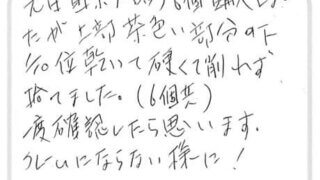 たが上部茶色い部分の下
1/10位乾いて硬くて削れず
捨てました。(6個共)
度確認したら思います。
クレームにならない様に!